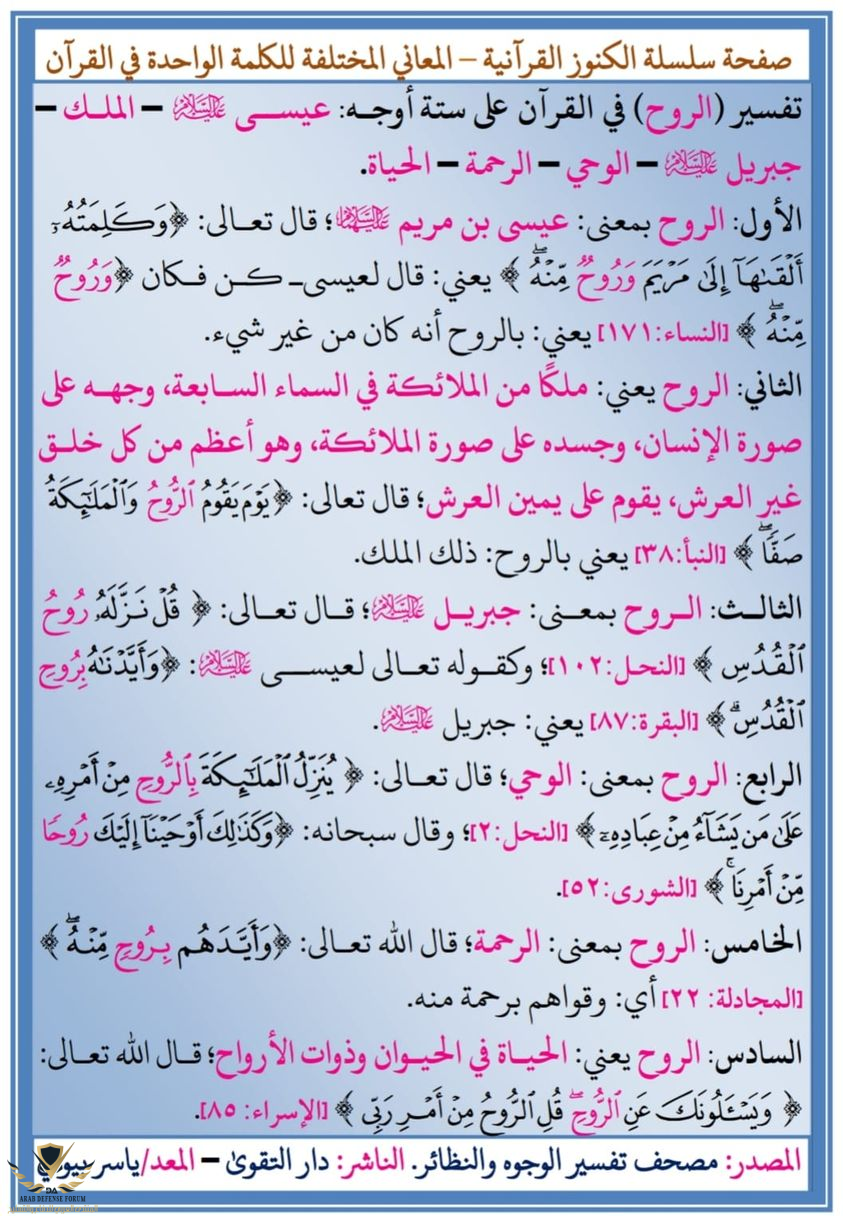 صفحة سلسلة الكنوز القرآنية – المعاني المختلفة للكلمة الواحدة في القرآن
تفسير (الروح) في القرآن على ستة أوجـه: عيســى عليه السلام – الملـك –
جبريل عليه السلام – الوحي – الرحمة – الحياة.
الأول: الروح بمعنى: عيسى بن مريم عليهما السلام؛ قال تعـالى: ﴿وَكَلِمَتُهُۥٓ
أَلْقَىٰهَآ إِلَىٰ مَرْيَمَ وَرُوحٌ مِّنْهُۖ ﴾ يعني: قال لعيسىـ كـن فـكان ﴿وَرُوحٌ
مِّنْهُۖ ﴾ [النساء:١٧١] يعني: بالروح أنه كان من غير شيء.
الثاني: الروح يعني: ملكًا من الملائكة في السماء السـابعة، وجهـه على
صورة الإنسان، وجسده على صورة الملائكة، وهو أعظم من كل خلـق
غير العرش، يقوم على يمين العرش؛ قال تعالى: ﴿يَوْمَ يَقُومُ ٱلرُّوحُ وَٱلْمَلَٰٓئِكَةُ
صَفًّاۖ ﴾ [النبأ:٣٨] يعني بالروح: ذلك الملك.
الثالـث: الـروح بمعـنى: جبريـل عليه السلام؛ قـال تعـالى: ﴿ قُلْ نَزَّلَهُۥ رُوحُ
ٱلْقُدُسِ ﴾ [النحل:١٠٢]؛ وكقـوله تعـالى لعيســى عليه السلام: ﴿وَأَيَّدْنَٰهُ بِرُوحِ
ٱلْقُدُسِۗ ﴾ [البقرة:٨٧] يعني: جبريل عليه السلام.
الرابع: الروح بمعنى: الوحي؛ قال تعـالى: ﴿ يُنَزِّلُ ٱلْمَلَٰٓئِكَةَ بِٱلرُّوحِ مِنْ أَمْرِهِۦ
عَلَىٰ مَن يَشَآءُ مِنْ عِبَادِهِۦٓ ﴾ [النحل:٢]؛ وقال سبحانه: ﴿وَكَذَٰلِكَ أَوْحَيْنَآ إِلَيْكَ رُوحًا
مِّنْ أَمْرِنَاۚ ﴾ [الشورى:٥٢].
الخامس: الروح بمعنى: الرحمة؛ قال الله تعـالى: ﴿وَأَيَّدَهُم بِرُوحٍ مِّنْهُۖ ﴾
[المجادلة: ٢٢] أي: وقواهم برحمة منه.
السادس: الروح يعني: الحيـاة في الحيـوان وذوات الأرواح؛ قـال الله تعـالى:
﴿ وَيَسْـَٔلُونَكَ عَنِ ٱلرُّوحِۖ قُلِ ٱلرُّوحُ مِنْ أَمْرِ رَبِّى ﴾ [الإسراء: ٨٥].
المصدر: مصحف تفسير الوجوه والنظائر. الناشر: دار التقوىٰ – المعد/ياسر بيومي
DA
ARAB DEFENSE FORUM